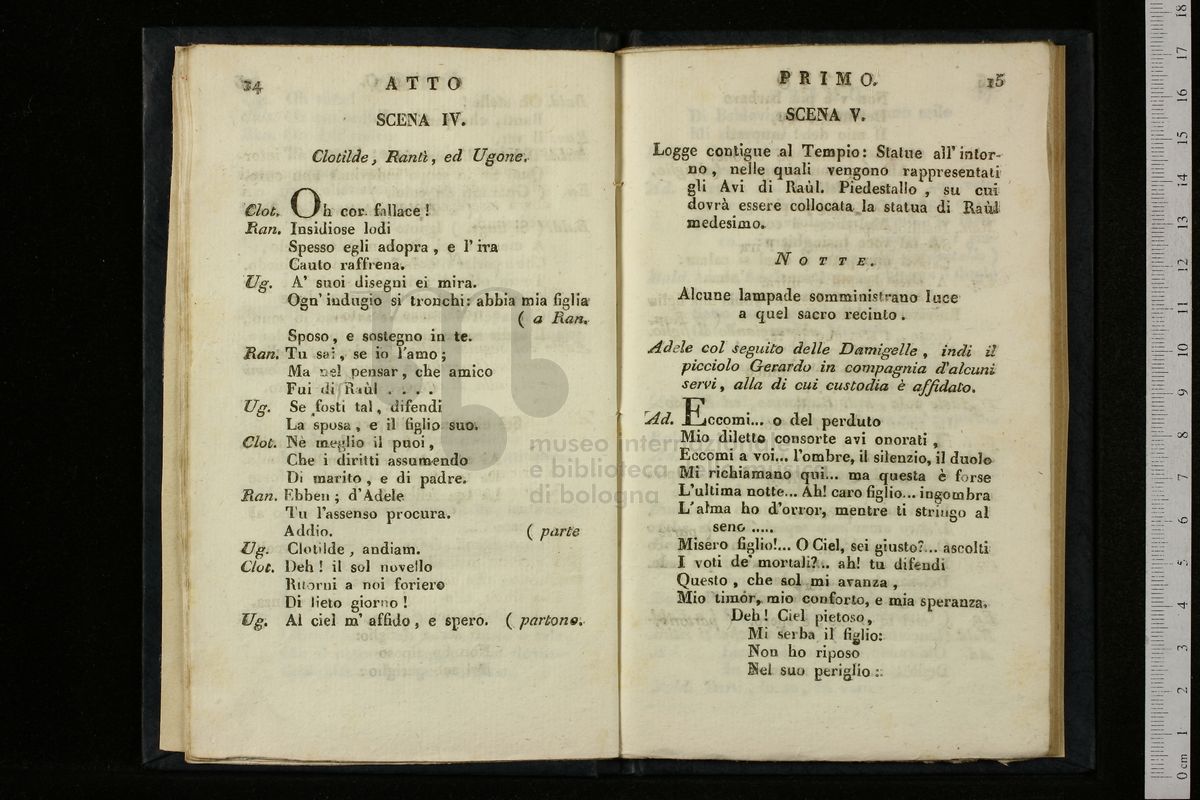 14
ATTO
SCENA IV.
Clotilde, Rantì, ed Ugone.
Clot. Oh cor fallace!
Ran. Insidiose lodi
Spesso egli adopra, e l'ira
Cauto raffrena.
Ug. A' suoi disegni ei mira.
Ogn' indugio si tronchi: abbia mia figlia
( a Ran.
Sposo, e sostegno in te.
Ran. Tu sai, se io l'amo;
Ma nel pensar, che amico
Fui di Raùl . . . .
Ug. Se fosti tal, difendi
La sposa, e il figlio suo.
Clot. Nè meglio il puoi,
Che i diritti assumendo
Di marito, e di padre.
Ran. Ebben; d'Adele
Tu l'assenso procura.
Addio. ( parte
Ug. Clotilde, andiam.
Clot. Deh! il sol novello
Ritorni a noi foriero
Di lieto giorno!
Ug. Al ciel m' affido, e spero. ( partono.
PRIMO.
15
SCENA V.
Logge contigue al Tempio: Statue all' intor-
no, nelle quali vengono rappresentati
gli Avi di Raùl. Piedestallo, su cui
dovrà essere collocata la statua di Raùl
medesimo.
NOTTE.
Alcune lampade somministrano luce
a quel sacro recinto.
Adele col seguito delle Damigelle, indi il
picciolo Gerardo in compagnia d'alcuni
servi, alla di cui custodia è affidato.
Ad. Eccomi... o del perduto
Mio diletto consorte avi onorati,
Eccomi a voi... l'ombre, il silenzio, il duolo
Mi richiamano qui... ma questa è forse
L'ultima notte... Ah! caro figlio... ingombra
L'alma ho d'orror, mentre ti stringo al
seno .....
Misero figlio!... O Ciel, sei giusto?... ascolti
I voti de' mortali?.. ah! tu difendi
Questo, che sol mi avanza,
Mio timòr, mio conforto, e mia speranza.
Deh! Ciel pietoso,
Mi serba il figlio:
Non ho riposo
Nel suo periglio:
museo internazionale
e biblioteca della musica
di bologna
0 cm 1 2 3 4 5 6 7 8 9 10 11 12 13 14 15 16 17 18